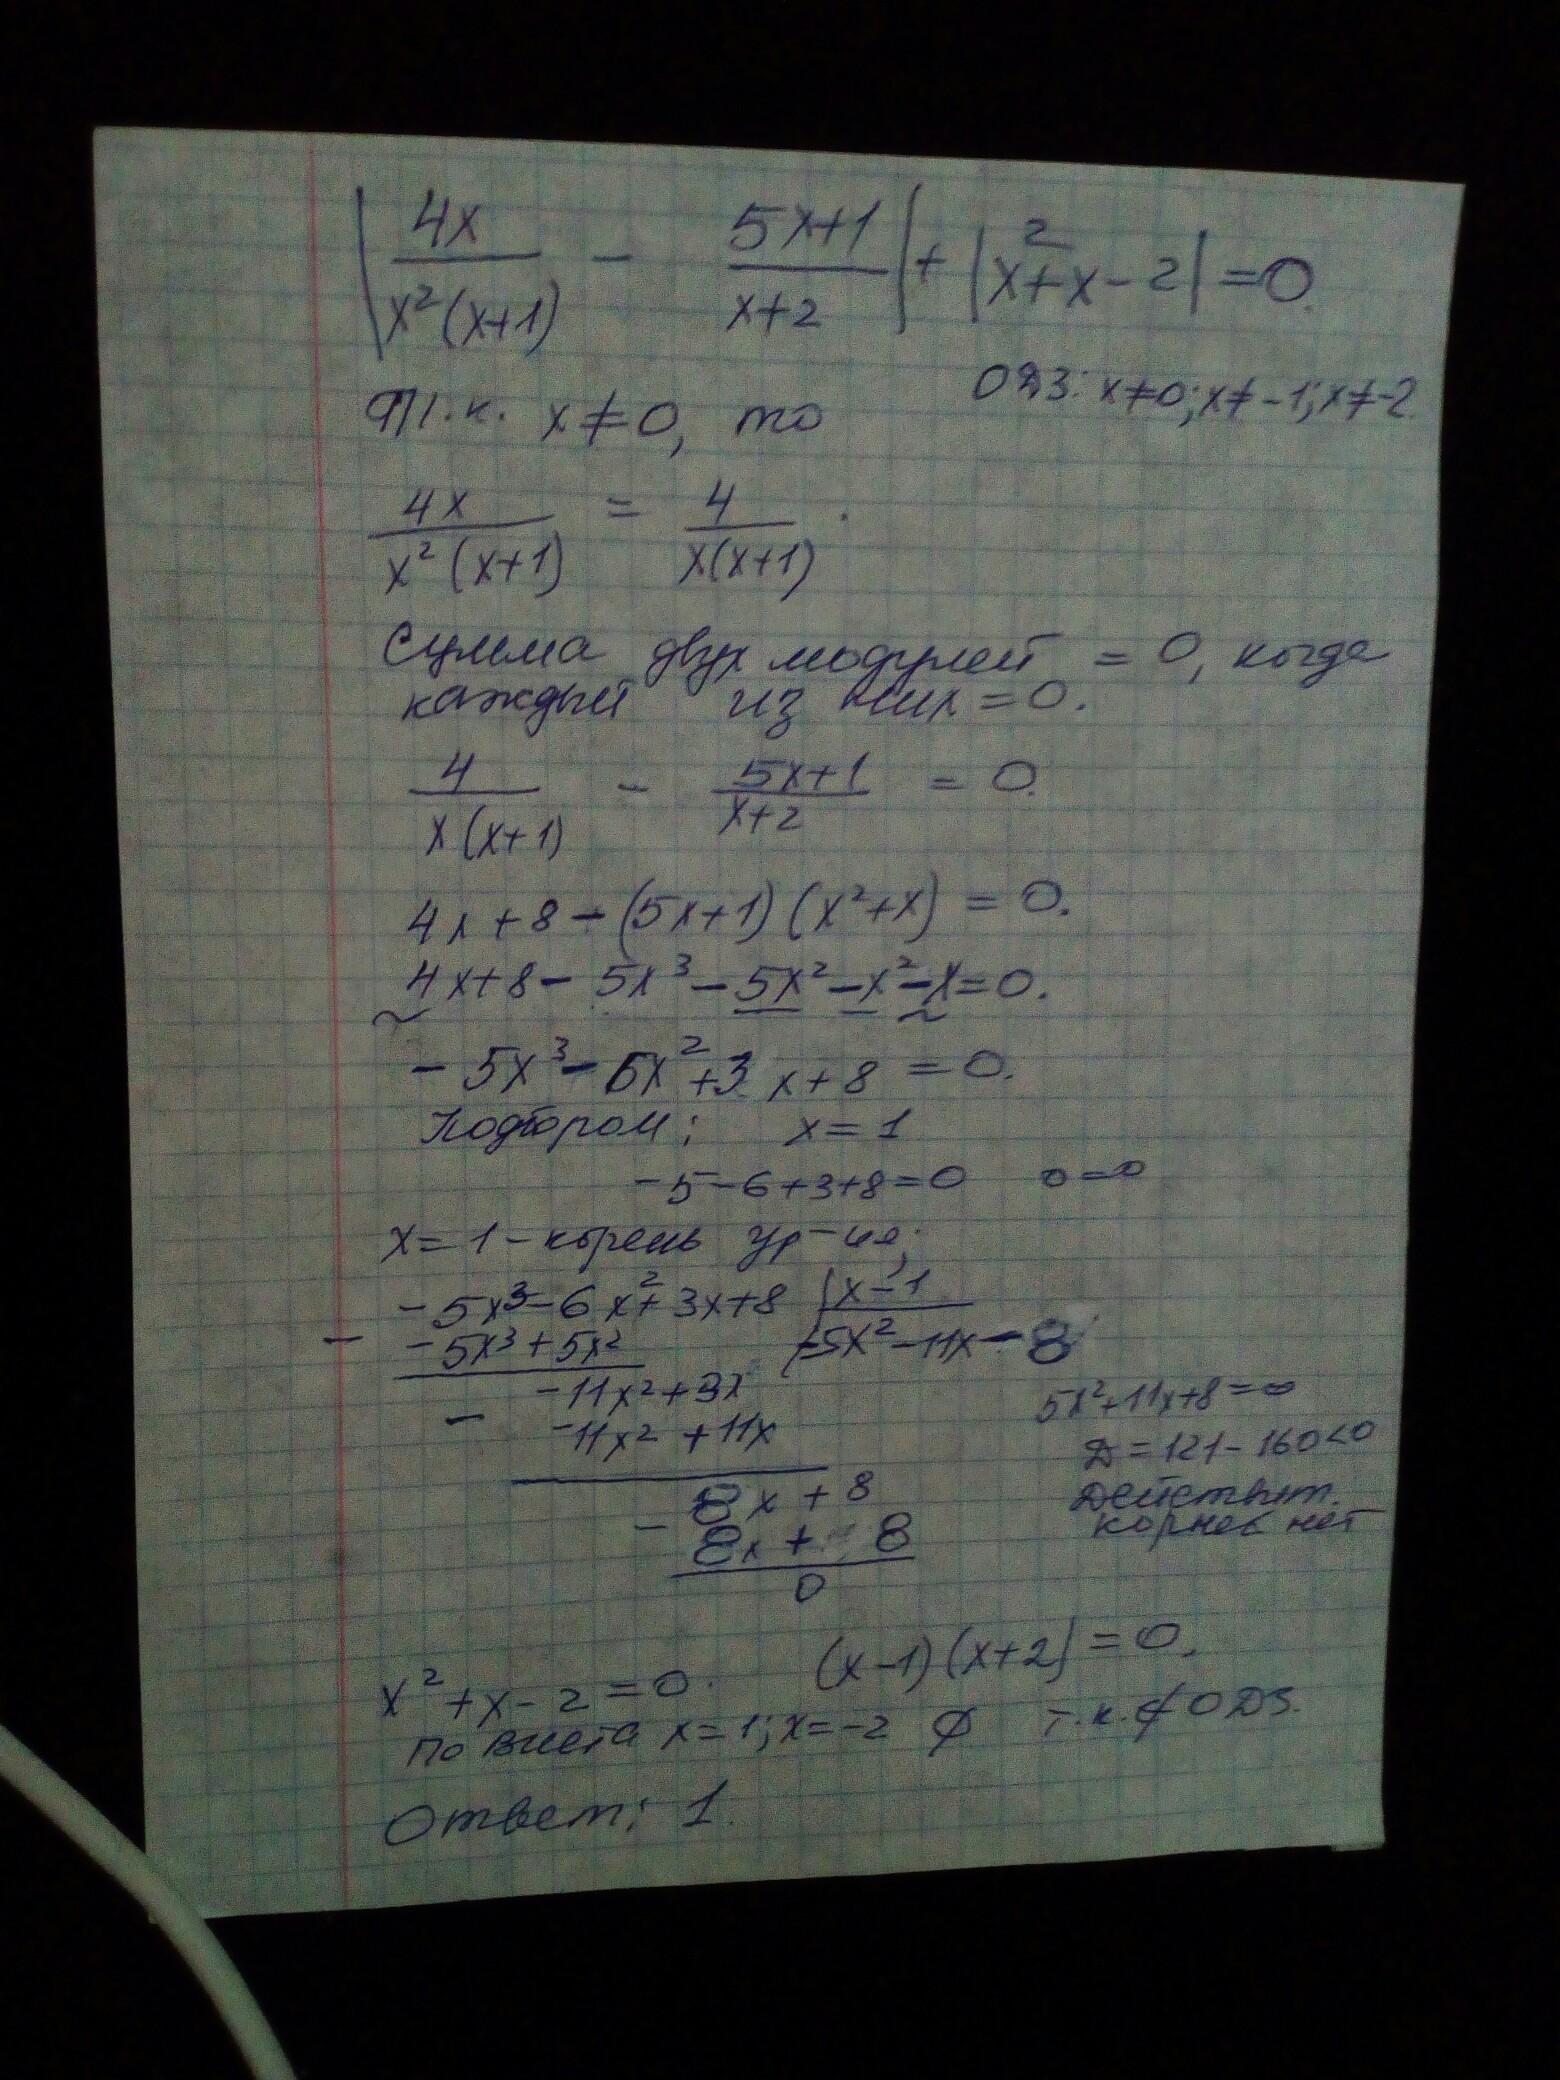 |4x/(x²(x+1)) - (5x+1)/(x+2)| + |x²+x-2| = 0.
ОДЗ: x≠0; x≠-1; x≠-2.
Т.к. x≠0, то
4x/(x²(x+1)) = 4/(x(x+1)).
Сумма двух модулей = 0, когда
каждый из них = 0.
4/(x(x+1)) - (5x+1)/(x+2) = 0.
4x+8-(5x+1)(x²+x) = 0.
4x+8-5x³-5x²-x²-x=0.
-5x³-6x²+3x+8=0.
Подбором: x=1
-5-6+3+8=0 0=0
x=1-корень ур-ия;
-5x³-6x²+3x+8 | x-1
- -5x³+5x² -5x²-11x-8
-11x²+3x
- -11x²+11x
-8x+8
- -8x+8
0
5x²+11x+8=0
D=121-160<0
Действит.
корней нет
x²+x-2=0. (x-1)(x+2)=0.
по Виета x=1; x=-2 ∅ т.к. ∉ ОДЗ.
Ответ: 1.